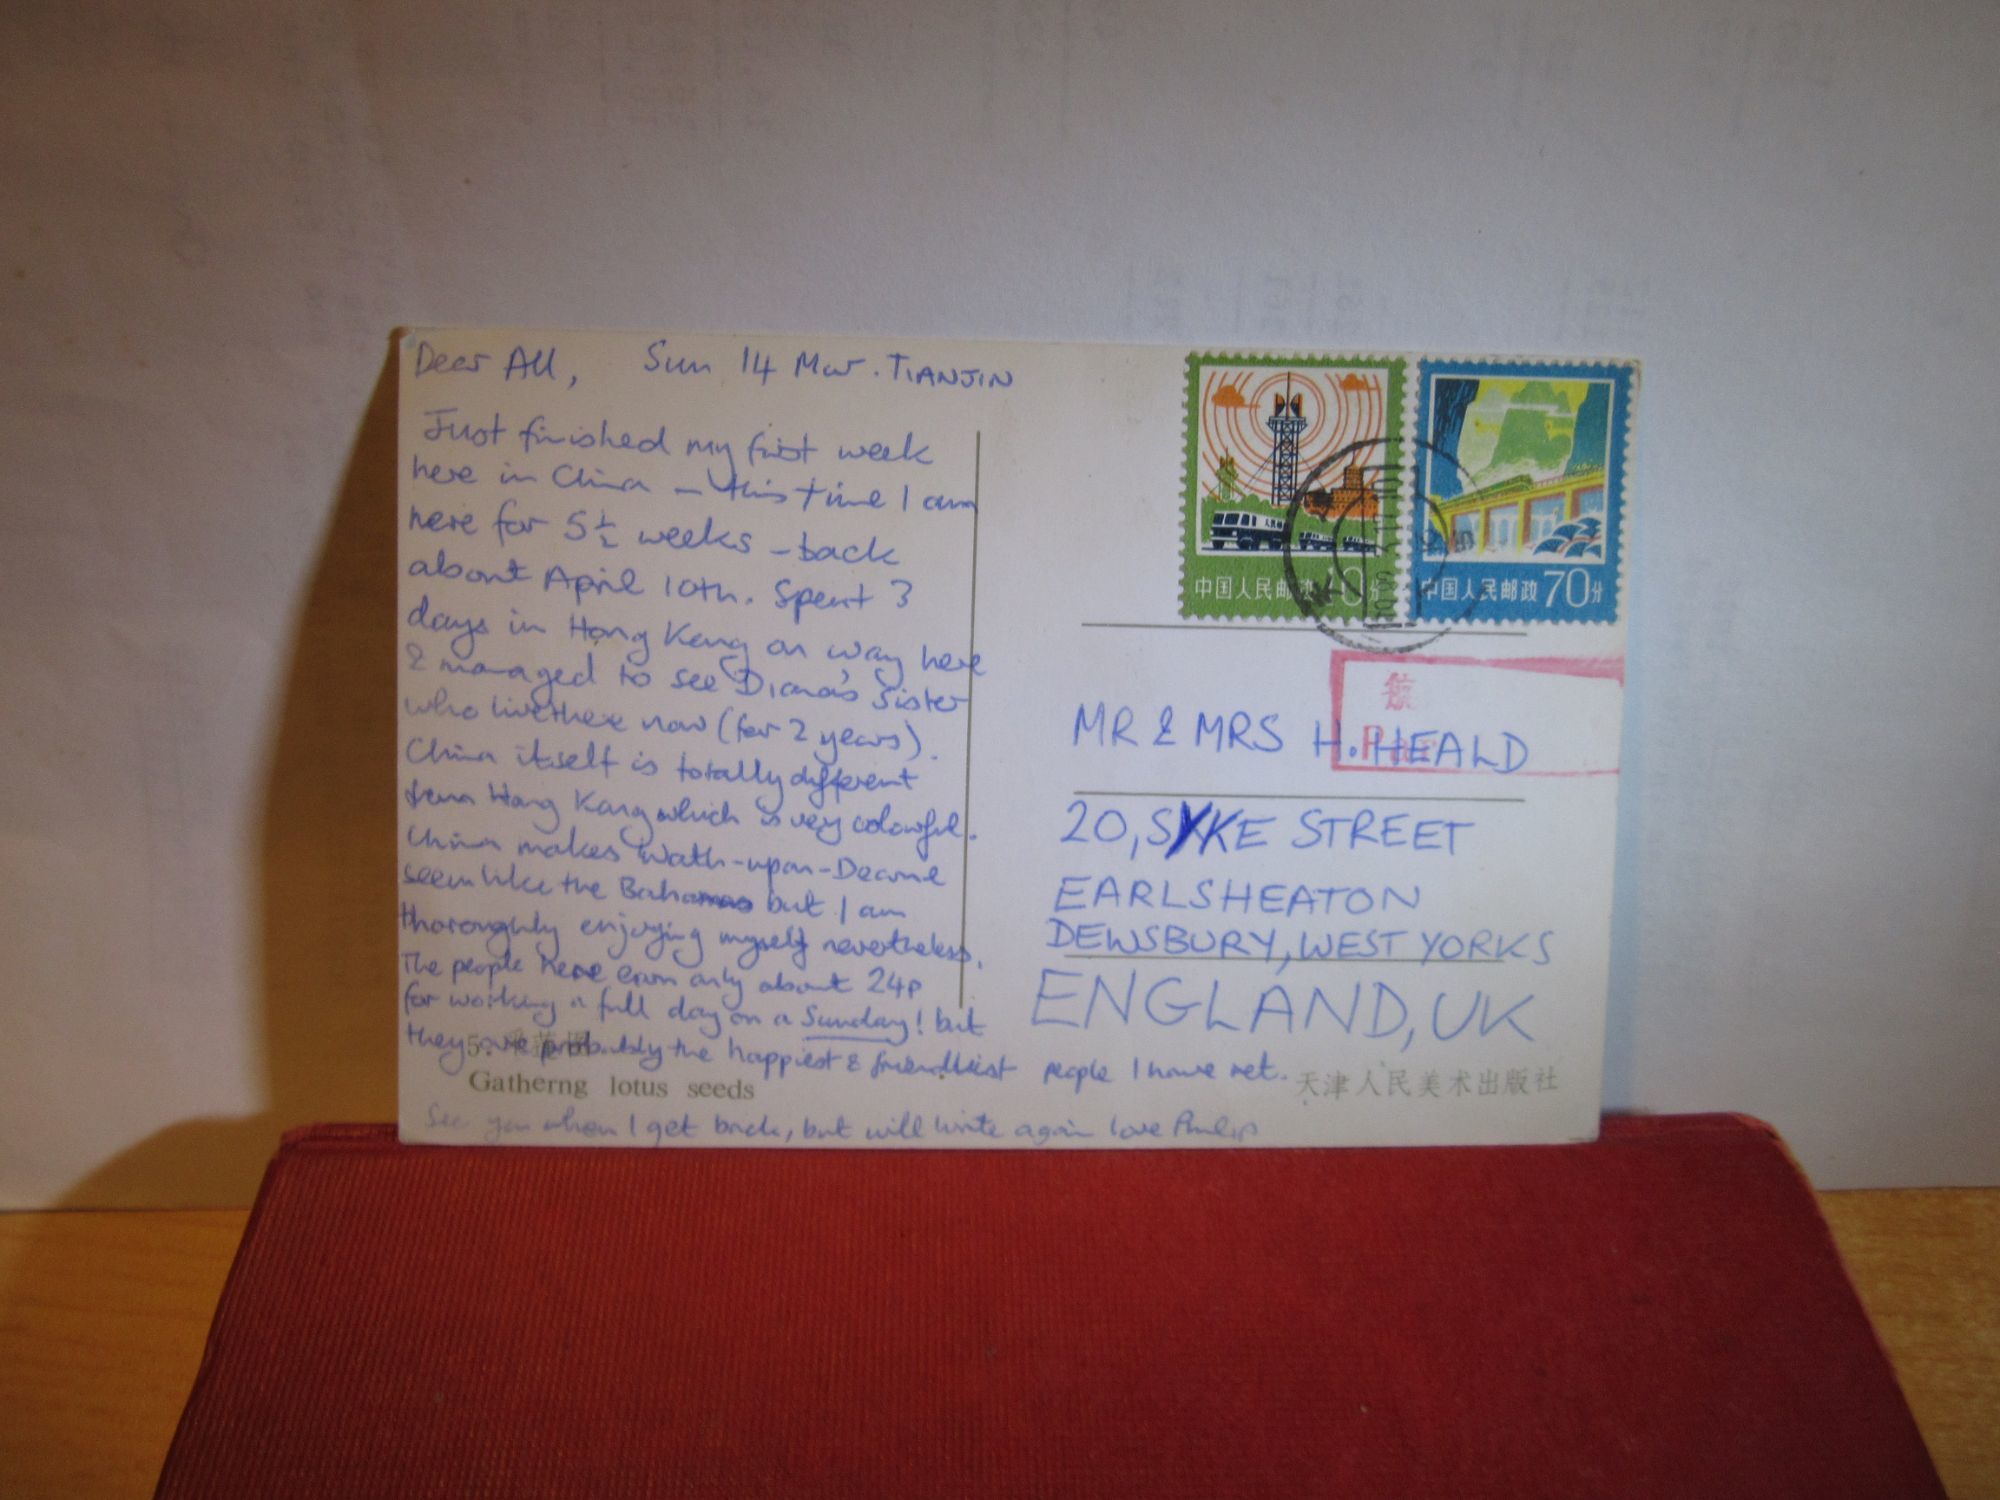 Dear All, Sun 14 Mar. TIANJIN
Just finished my first week
here in China – this time I am
here for 5½ weeks – back
about April 10th. Spent 3
days in Hong Kong on way here
& managed to see Diana's Sister
who live there now (for 2 years).
China itself is totally different
from Hong Kong which is very colourful.
China makes Wath-upon-Dearne
seem like the Bahamas but I am
thoroughly enjoying myself nevertheless.
The people here earn only about 24p
for working a full day on a Sunday! but
they are probably the happiest & friendliest people I have met.
See you when I get back, but will write again love Philip
5.
Gatherng lotus seeds
中国人民邮政
中国人民邮政 70分
航
Par
MR & MRS H. HEALD
20, SYKE STREET
EARLSHEATON
DEWSBURY, WEST YORKS
ENGLAND, UK
天津人民美术出版社